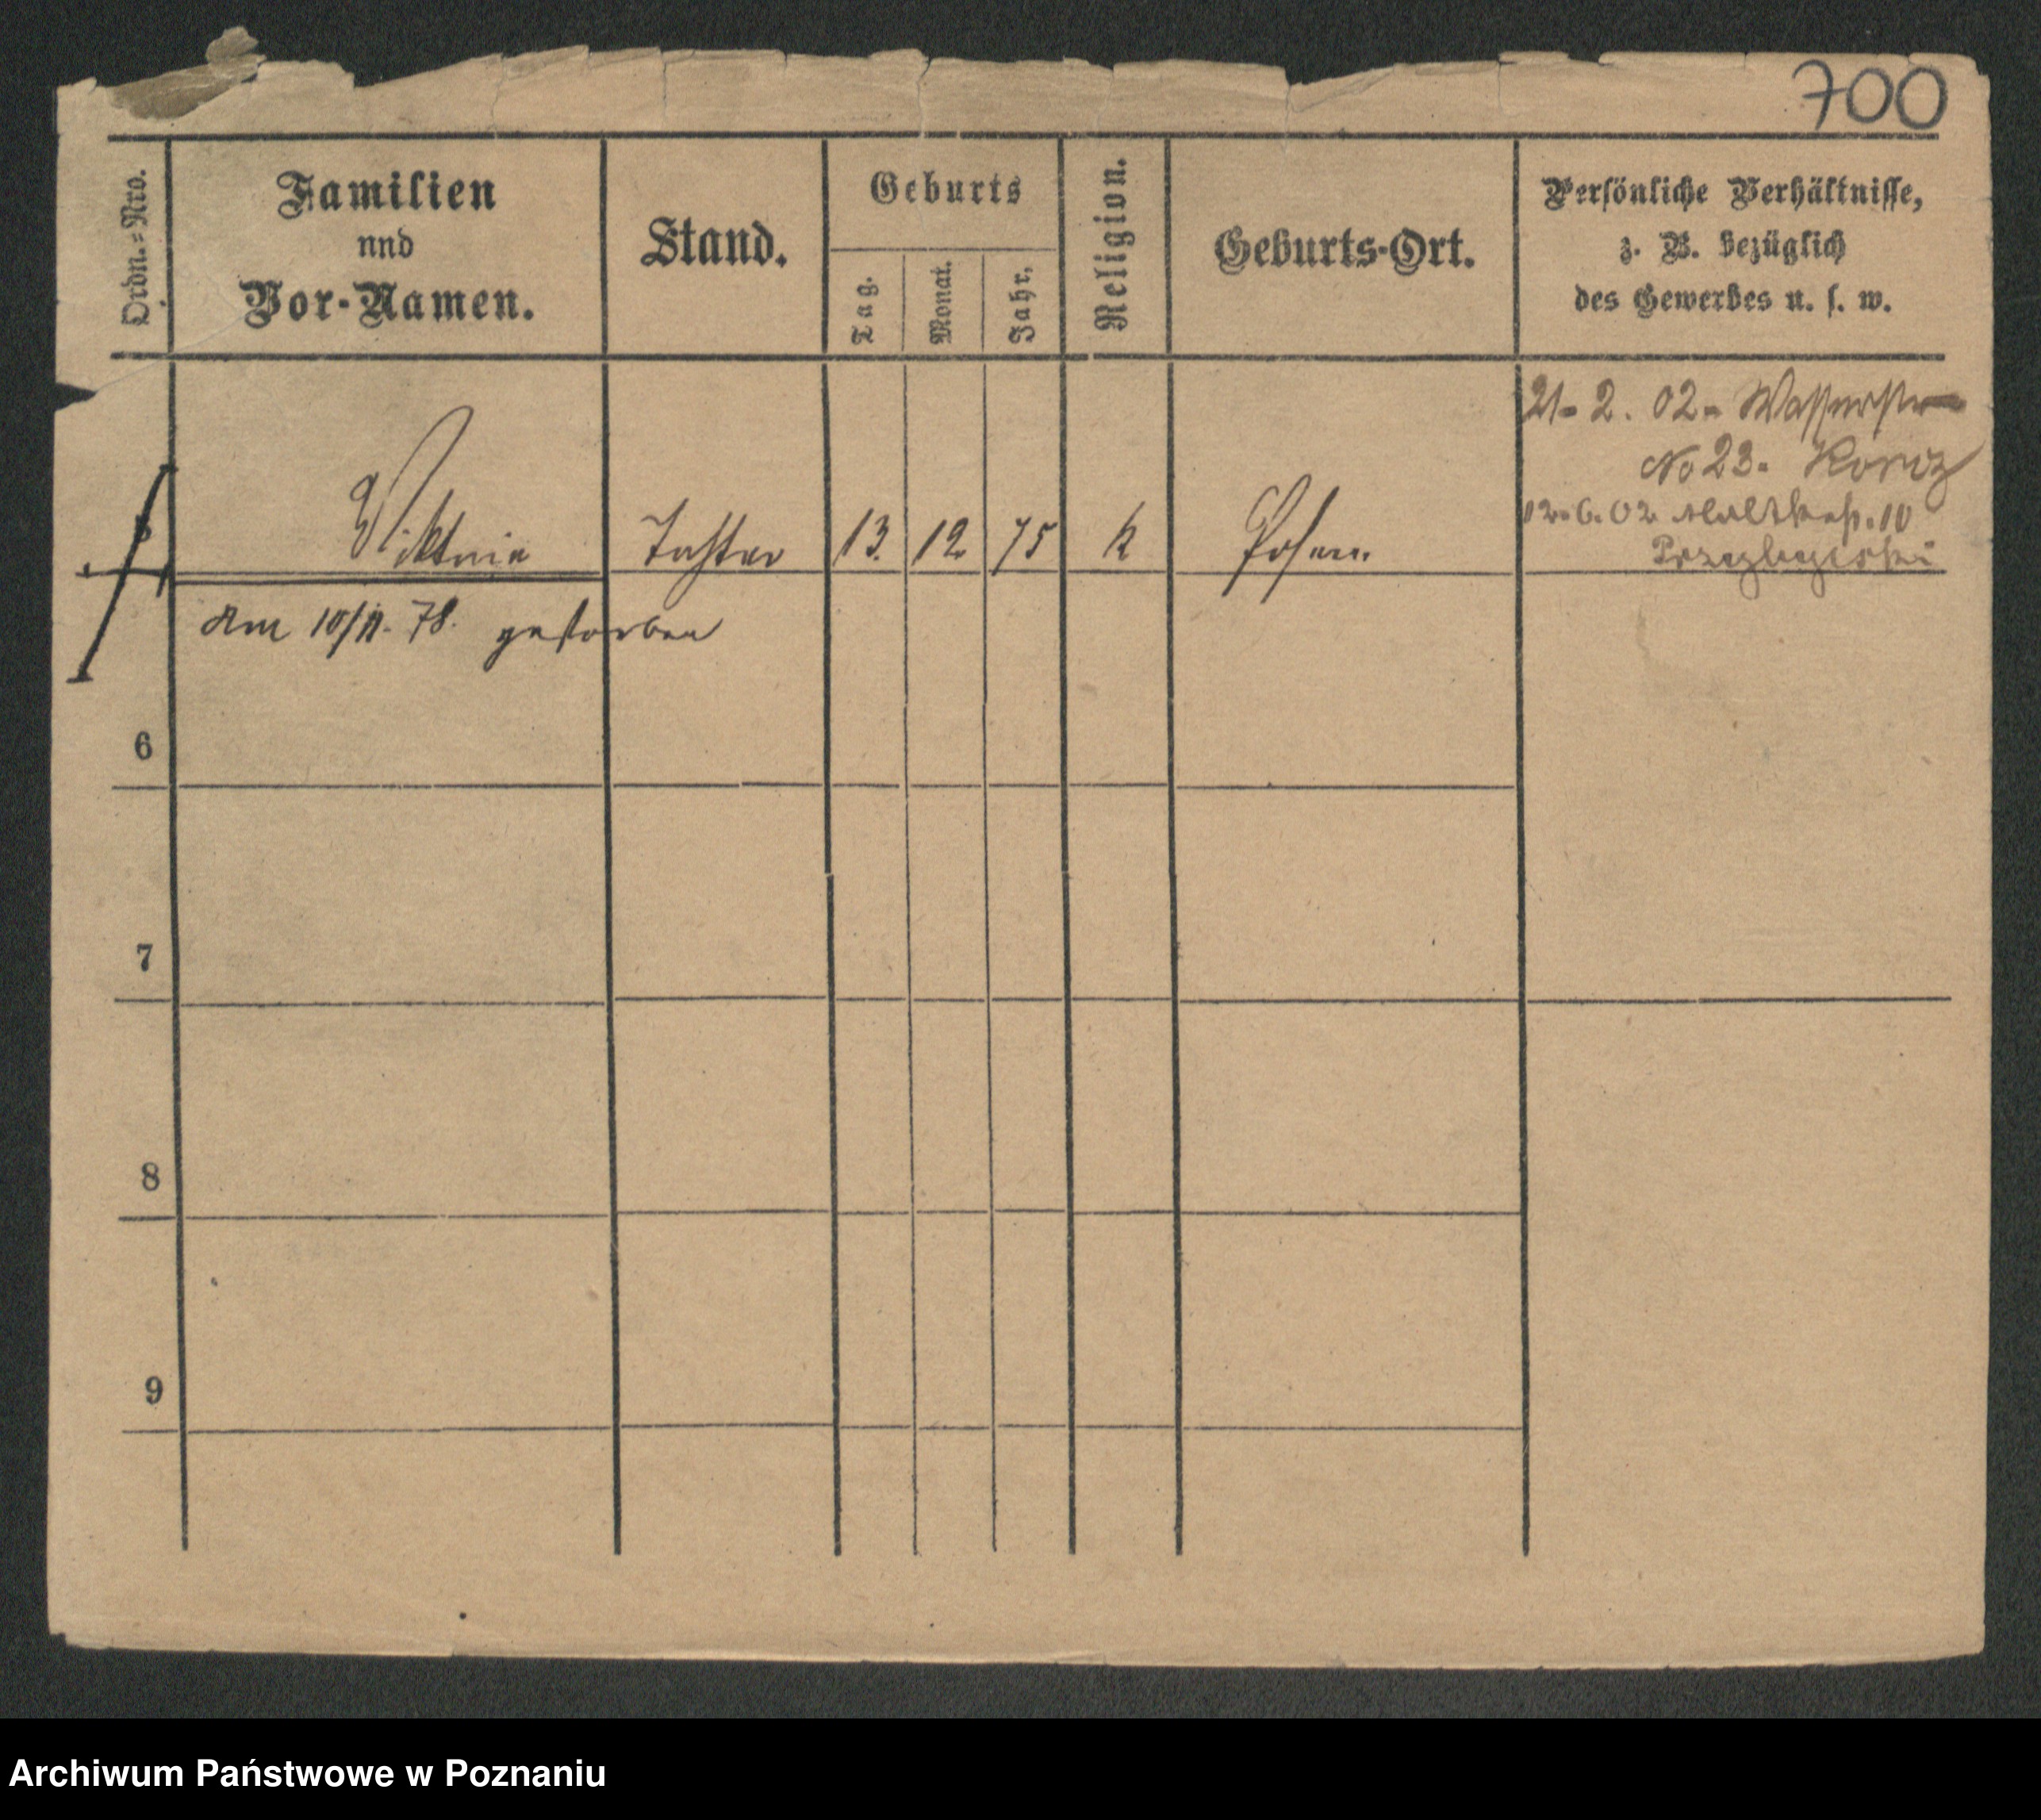 700
Ordn.=Nro.
Familien
nnd
Vor-Namen.
Stand.
Geburts
Tag.
Monat.
Jahr.
Religion.
Geburts-Ort.
Persönliche Verhältnisse,
z. B. bezüglich
des Gewerbes u. s. w.
21-2. 02- Wasserstr
No 23-
5 Viktoria Tochter 13. 12 75 k Posen.
12.6.02 10
am 10/11. 78. gestorben
6
7
8
9
Archiwum Państwowe w Poznaniu